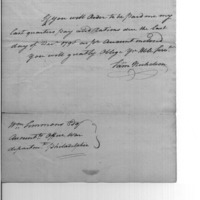 If you will Order to be paid me my
last quarters pay & Rations on the last
day of Decr 1796 as pr Account inclosed
You will greatly Oblige Yr Hble Servt
Wm Simmons Esq
Accountt of the War
department Philadelphia